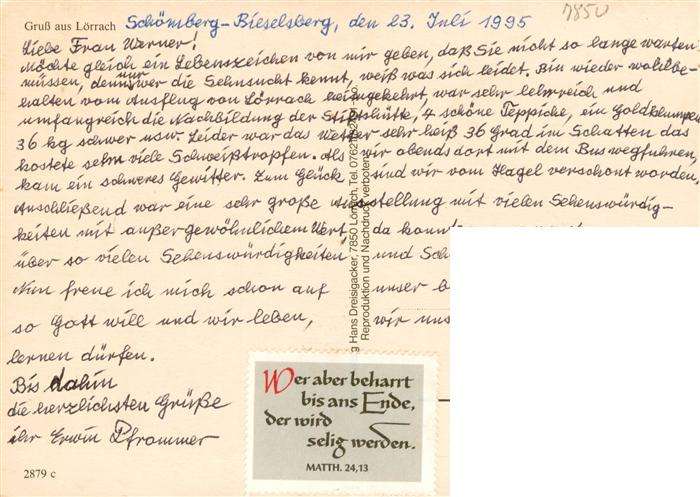 Gruß aus Lörrach
Schömberg-Bieselsberg, den 23. Juli 1995
7850
Liebe Frau Werner!
Möchte gleich ein Lebenszeichen von mir geben, daß Sie nicht so lange warten
müssen, denn nur wer die Sehnsucht kennt, weiß was sich leidet. Bin wieder wohlbe-
halten vom Ausflug von Lörrach heimgekehrt, war sehr lehrreich und
umfangreich die Nachbildung der Stiftshütte, 4 schöne Teppiche, ein Goldklumpen
36 kg schwer usw. Leider war das Wetter sehr heiß 36 Grad im Schatten das
kostete sehr viele Schweißtropfen. Als wir abends dort mit dem Bus wegfuhren,
kam ein schweres Gewitter. Zum Glück sind wir vom Hagel verschont worden,
Anschließend war eine sehr große Ausstellung mit vielen Sehenswürdig-
keiten mit außergewöhnlichem Wert, da
über so vielen Sehenswürdigkeiten und
Nun freue ich mich schon auf unser
so Gott will und wir leben, wir
lernen dürfen.
Bis dahin
die herzlichsten Grüße
ihr Erwin Pfrommer
2879 c
Hans Dreisigacker, 7850 Lörrach, Tel. 0762
Reproduktion und Nachdruck verboten
Wer aber beharrt
bis ans Ende,
der wird
selig werden.
MATTH. 24,13